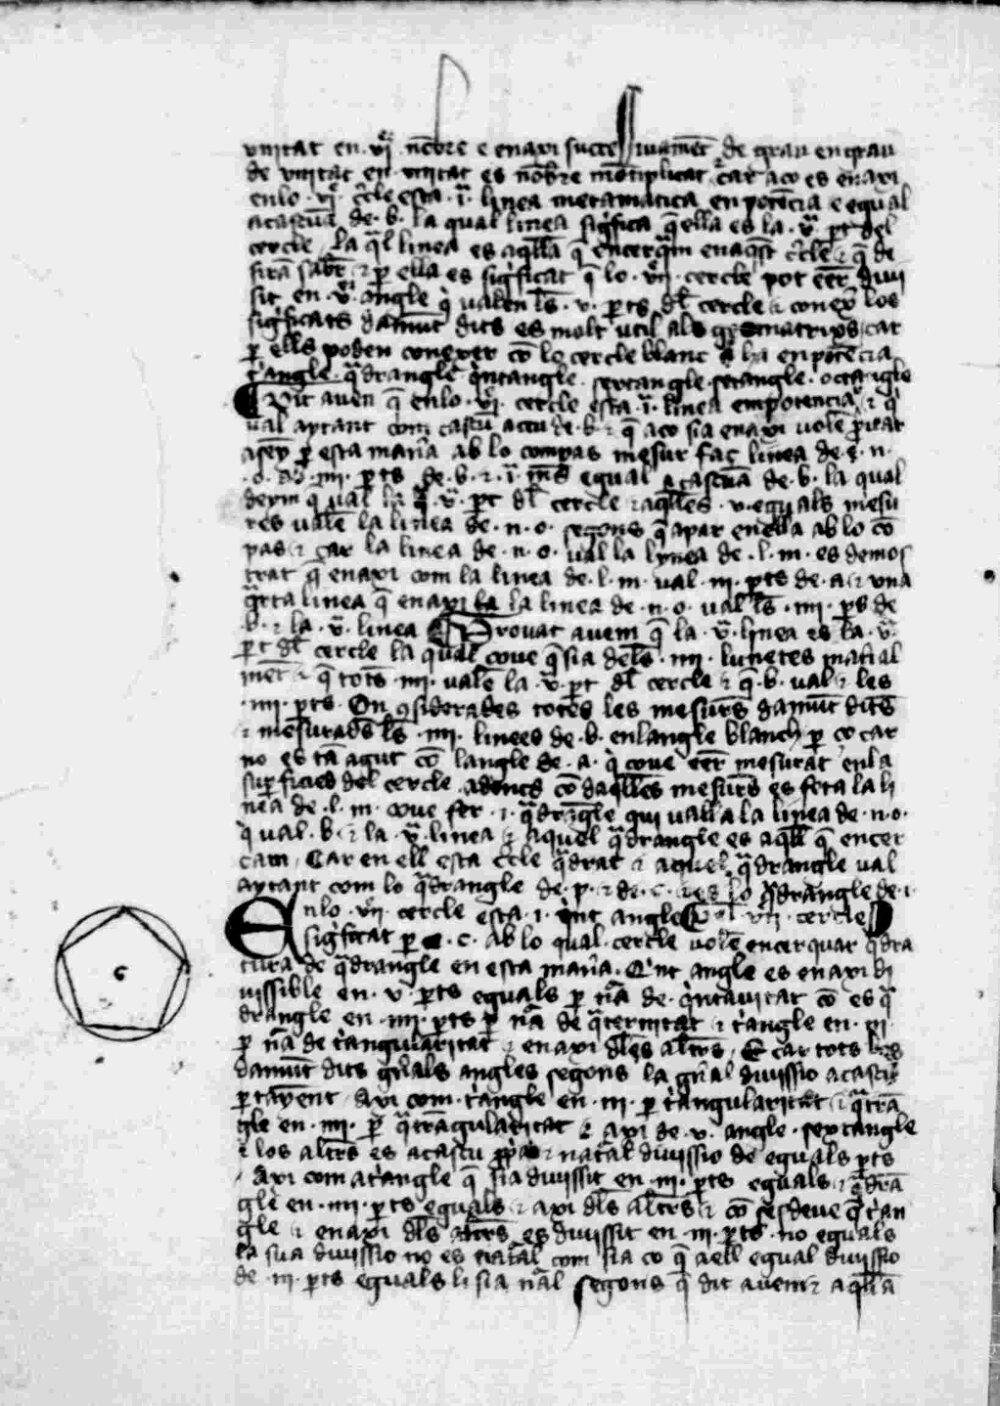 vnitat en .vi. nōbre e enaxi successiuamēt de grau en grau
de vnitat en vnitat es nōbre mōtiplicat car aco es enaxi
en lo .vi. c̄cle esta .i. linea metamatica en potēcia e egual
a cascuā de .b. la qual linea sigfica q̄ ella es la .v. pt del
cercle la q̄l linea es aq̄lla q̄ encerq̄m en aq̄st c̄cle & q̄ de
siram saber & p ella es sigficat q̄ lo .vii. cercle pot eēr diui
sit en .v. angle q̄ valen ls̄ .v. pts dl̄ cercle & conexer los
sigficats damūt dits es molt util als geomatrixs car
p ells poden conexer cō lo cercle blanc ha en potēcia
t'angle q̄drangle q̄ntangle sextangle setangle octangle
Dit auen q̄ en lo .vi. cercle esta .i. linea em potencia & q̄
val aytant com cascū de .b. & q̄ aco sia enaxi volē prouar
p esta mana ab lo compas mesur faç linea de .n.
.o. ab .iiii. pts de .b. & .i. egual a cascuā de .b. la qual
deym q̄ val la .v. pt dl̄ cercle & aq̄lles .v. eguals mesu
res valē la linea de .n. o. segons q̄ apar en ella ab lo cō
pas & car la linea de .n. o. val la lynea de .l. m. es demos
trat q̄ enaxi com la linea de .l. m. val .iii. pts de .a. & vna
q̄rta linea q̄ enaxi la linea de .n. o. val ls̄ .iiii. pts de
.b. & la .v. linea Prouat auem q̄ la .v. linea es la .v.
pt dl̄ cercle la qual coue q̄ sia dels .iiii. lunetes mat'ial
mēt & q̄ tots .iiii. valē la .v. pt dl̄ cercle & q̄ .b. val & les
.iiii. pts. On 9siderades totes les mesurs damūt dits
& mesurads ls̄ .iiii. linees de .b. en langle blanch p ço car
no es tā agut cō langle de .a. q̄ coue eēr mesurat en la
superficies del cercle adoncs cō daq̄lles mesurs es feta la li
nea de .l. m. coue fer .i. q̄drāgle qui vall la linea de .n. o.
q̄ val .b. & la .v. linea & aquel q̄drangle es aq̄ll q̄ encer
cam Car en ell esta c̄cle q̄drat & aquel q̄drangle val
aytant com lo q̄drangle de .p. & de .c. & es lo q̄drangle de .i.
Enlo .vii. cercle esta .i. q̄int angle Del .vii. cercle
sigficat p .c. ab lo qual cercle volē encerquar q̄dra
tura de q̄drangle en esta mana. Q'nt angle es enaxi di
uissible en .v. pts eguals p nā de q̄ntauitat cō es q̄
drangle en .iiii. pts p nā de q̄ternitat & t'angle en .iii.
p nā de t'angularitat & enaxi dl̄s altrs E car tots los
damūt dits gn̄als angles segons la gn̄al diuissio a cascū
ptayent axi com t'angle en .iii. p t'angularitat & q̄trā
gle en .iiii. p q̄trāgularitat & axi de .v. angle sextangle
& los altrs es a cascu ppa & natal diuissio de eguals pts
axi com a t'angle q̄ sia diuissit en .iii. pts eguals & q̄drā
gle en .iiii. pts eguals & axi dl̄s altrs & cō sesdeue q̄ t'an
gle & enaxi dl̄s altrs es diuissit en .iii. pts no eguals
la sua diuissio no es natal com sia co q̄ a ell egual diuissio
de .iii. pts eguals li sia nal segons q̄ dit auem & aq̄sta
c